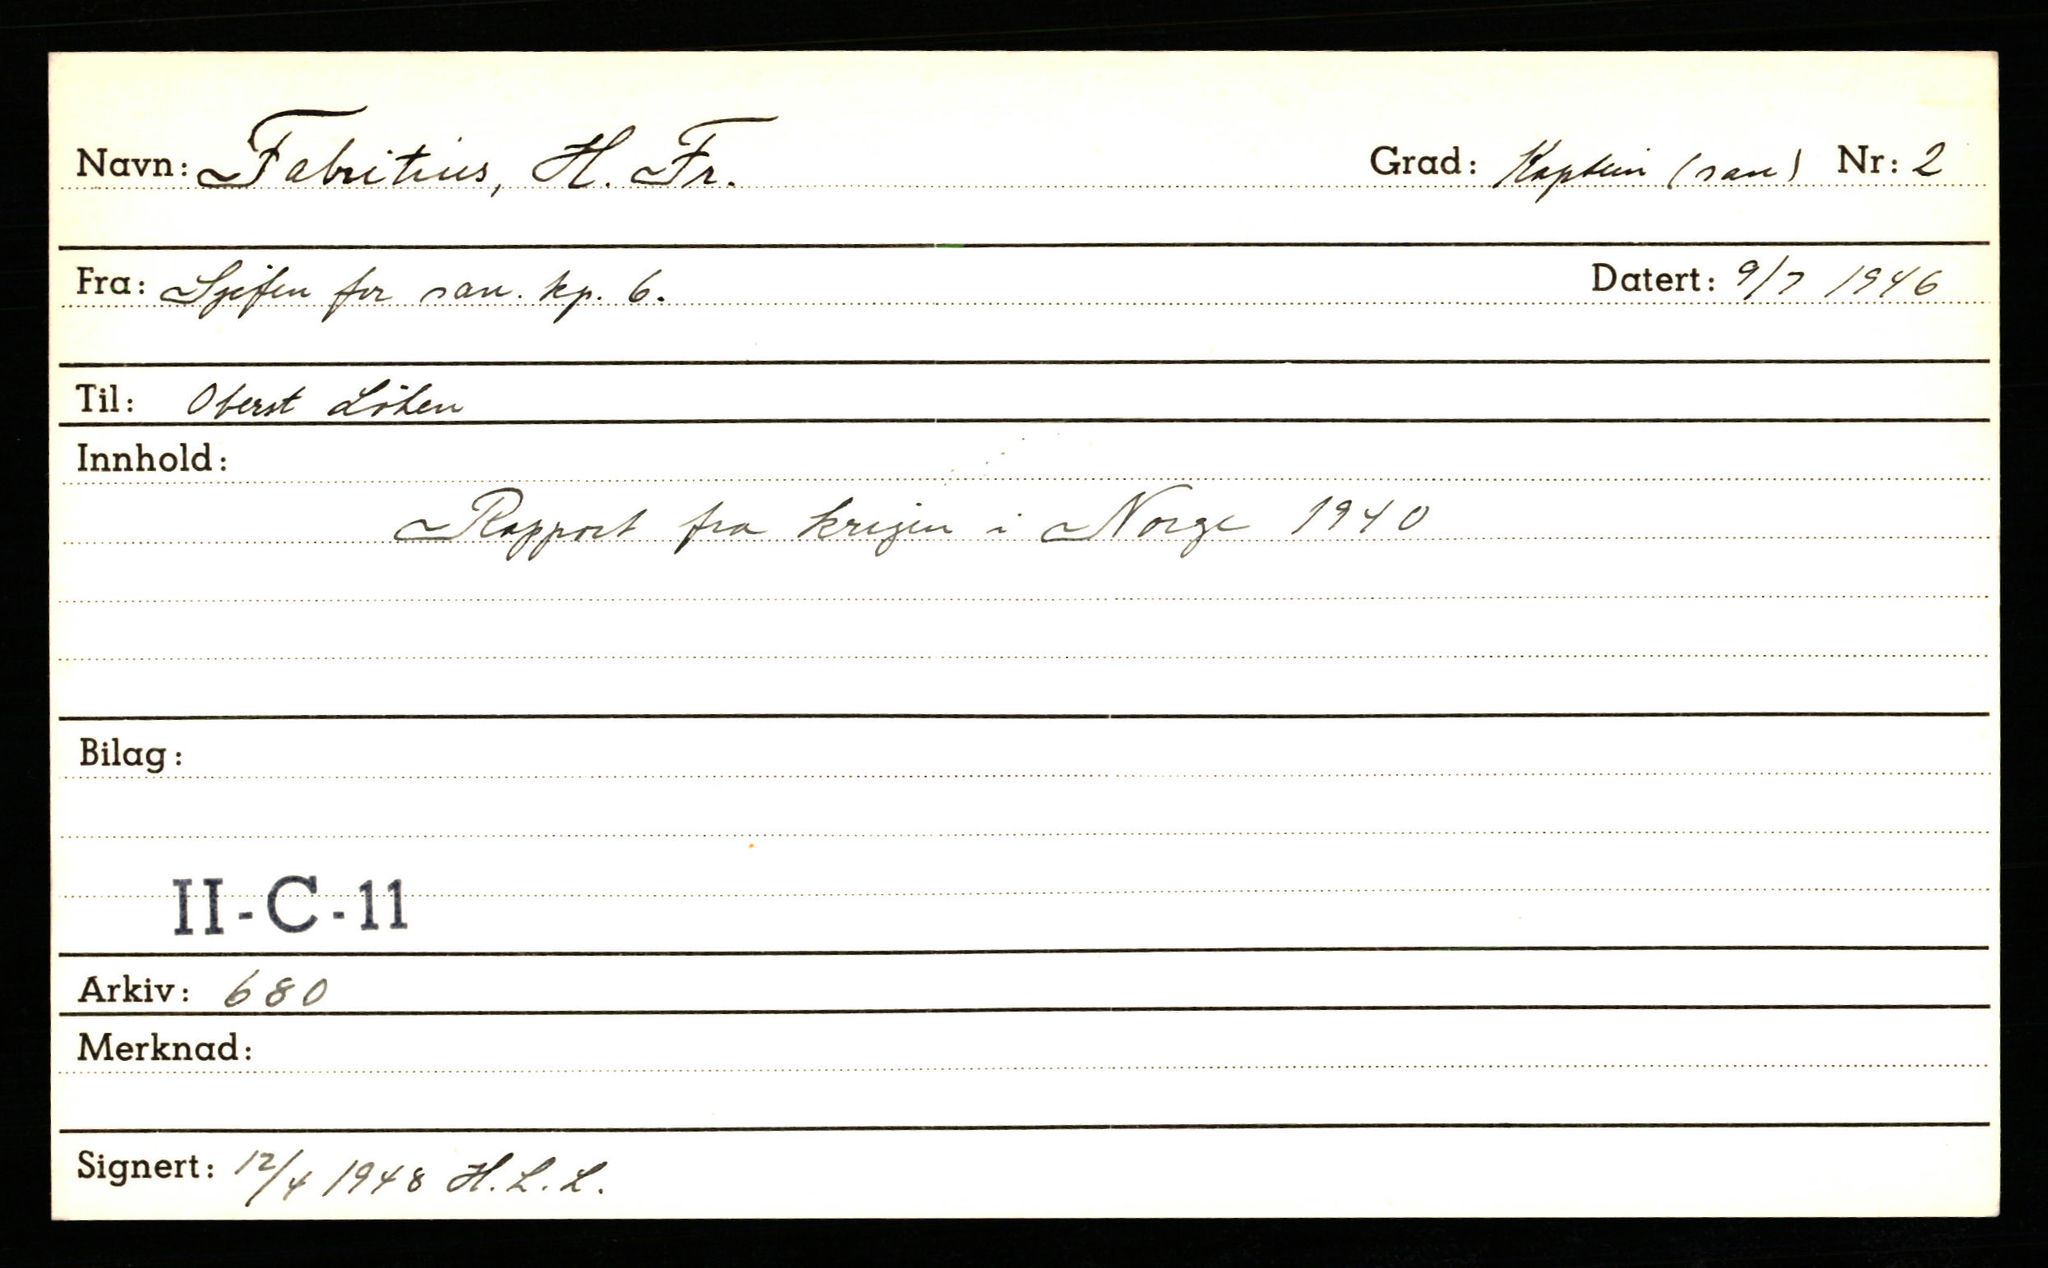 Navn: Fabritius, H. Fr. Grad: Kaptein (san) Nr: 2
Fra: Sjefen for san. kp. 6. Datert: 9/7 1946
Til: Oberst Löken
Innhold:
Rapport fra krigen i Norge 1940
Bilag:
II-C-11
Arkiv: 680
Merknad:
Signert: 12/4 1948 H.L.L.